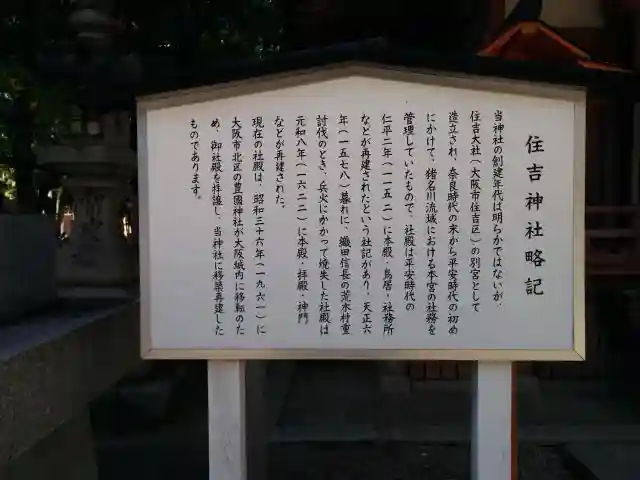 住吉神社略記
当神社の創建年代は明らかではないが、
住吉大社(大阪市住吉区)の別宮として
造立され、奈良時代の末から平安時代の初め
にかけて、猪名川流域における本宮の社務を
管理していたもので、社殿は平安時代の
仁平二年(一一五二)に本殿・鳥居・社務所
などが再建されたという社記があり、天正六
年(一五七八)暮れに、織田信長の荒木村重
討伐のとき、兵火にかかって焼失した社殿は
元和八年(一六二二)に本殿・拝殿・神門
などが再建された。
現在の社殿は、昭和三十六年(一九六一)に
大阪市北区の豊國神社が大阪城内に移転のた
め、御社殿を拝譲し、当神社に移築再建した
ものであります。